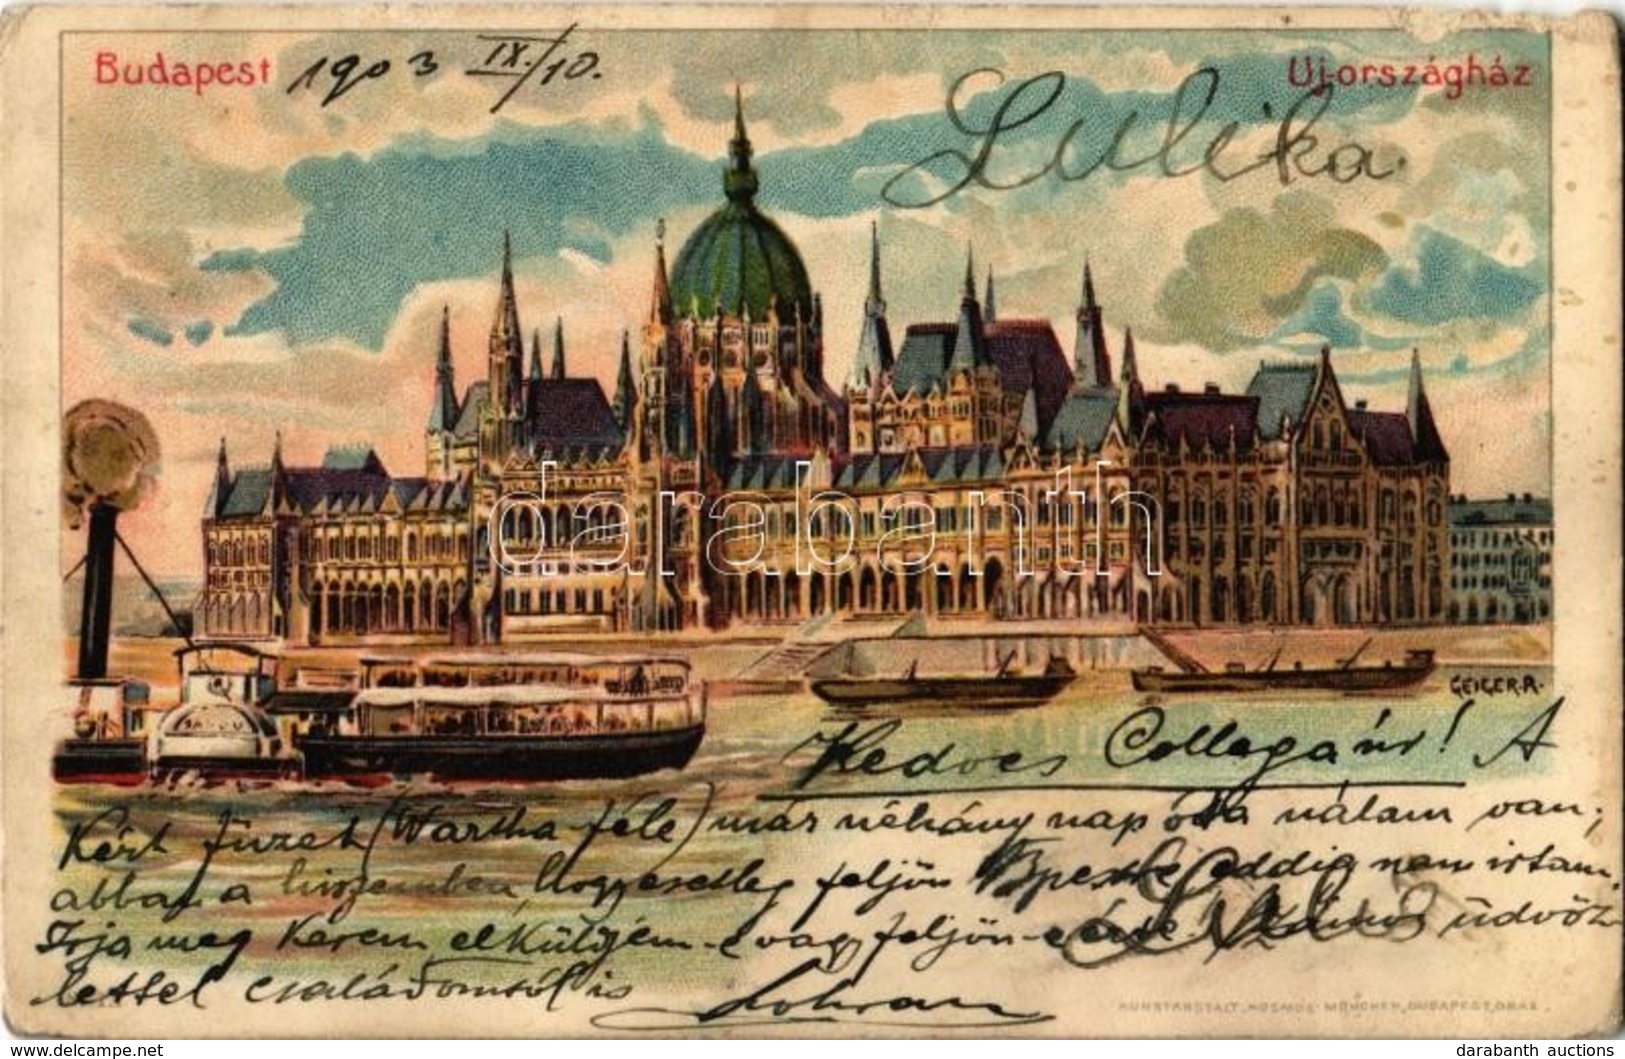 Budapest 1903 IX./10.
Uj-országház
Lulika
darabanth
GEIGER.R.
Kedves Collega úr! A
Kért füzet (Wartha-féle) már néhány nap óta nálam van;
abban a hiszemben, hogy esetleg feljön Bpestre eddig nem irtam.
Irja meg kérem elküldjem-e vagy feljön-e érte. Számos üdvöz-
lettel családomtól is
KUNSTANSTALT KOSMOS MÜNCHEN, BUDAPEST, GRAZ.
delcampe.net
darabanth auctions